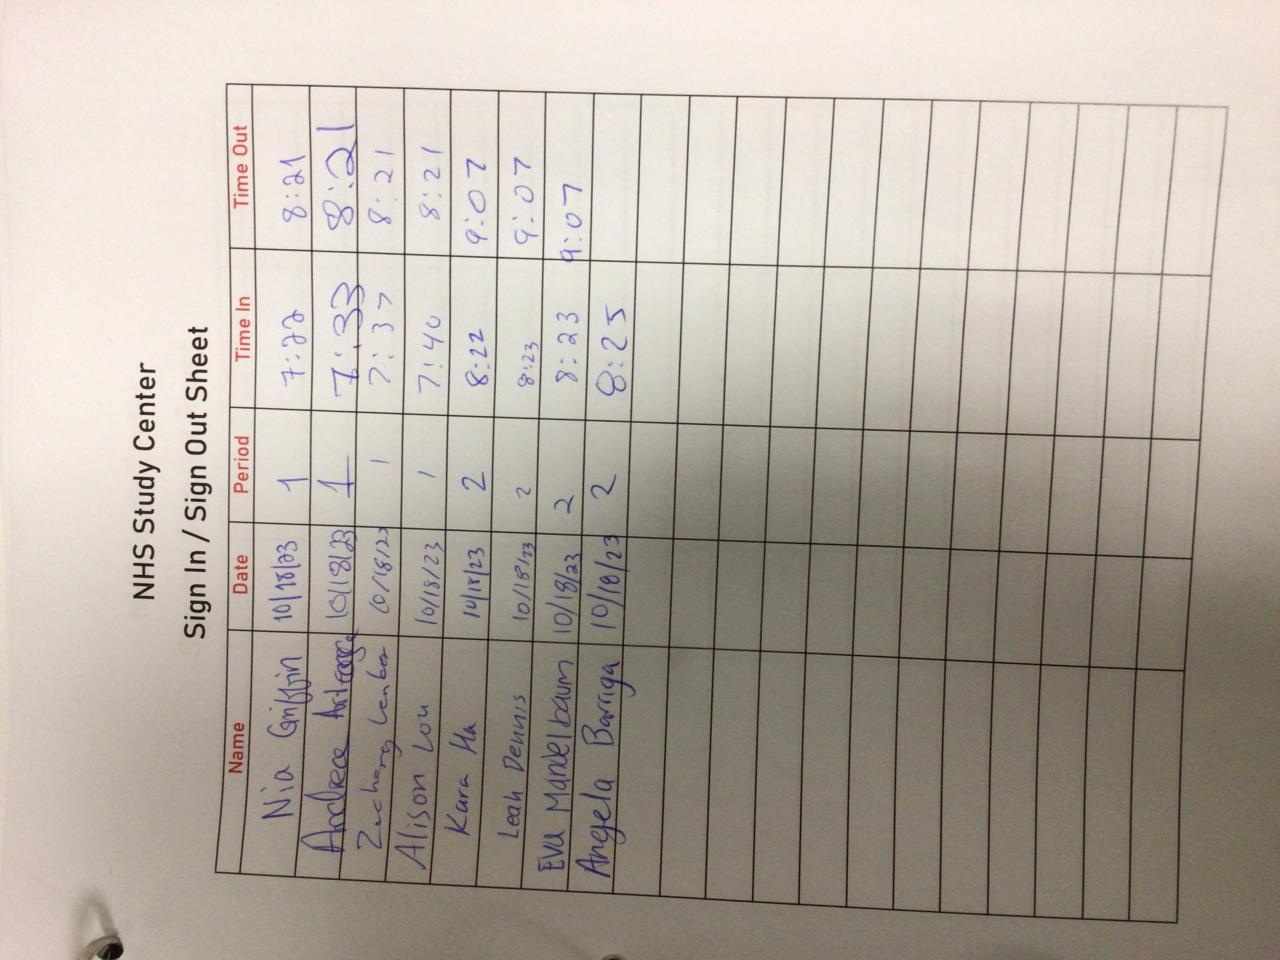 NHS Study Center
Sign In / Sign Out Sheet
Name Date Period Time In Time Out
Nia Griffin 10/18/23 1 7:22 8:21
Andrea 10/18/23 1 7:33 8:21
Zachary 10/18/23 1 7:37 8:21
Alison Lou 10/18/23 1 7:40 8:21
Kara Ha 10/18/23 2 8:22 9:07
Leah Dennis 10/18/23 2 8:23 9:07
Eva Mandelbaum 10/18/23 2 8:23 9:07
Angela Barriga 10/18/23 2 8:25